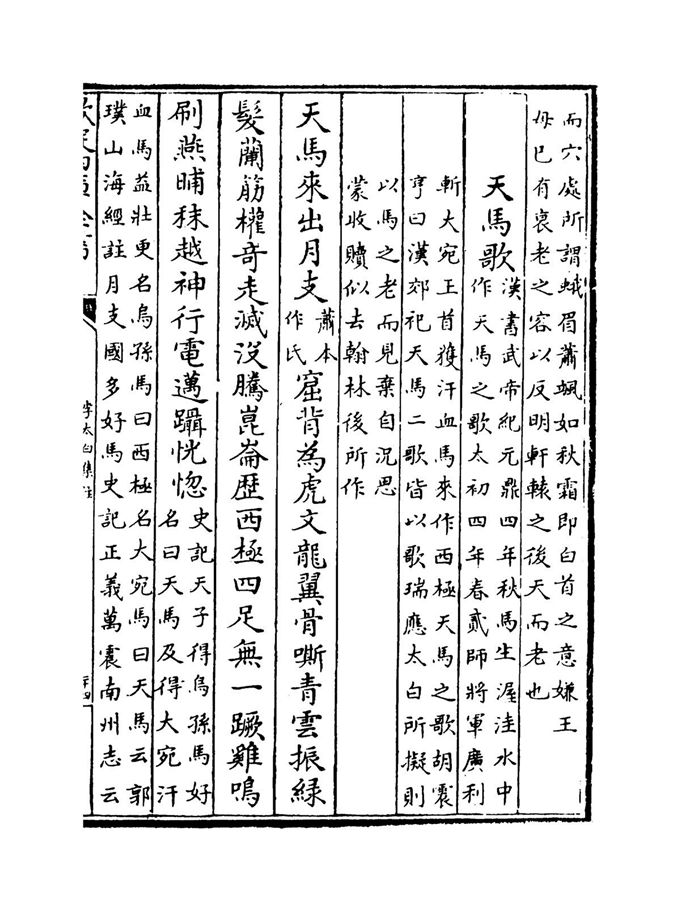 而穴處所謂蛾眉蕭颯如秋霜即白首之意嫌王
母已有衰老之容以反明軒轅之後天而老也
天馬歌
漢書武帝紀元鼎四年秋馬生渥洼水中
作天馬之歌太初四年春貳師將軍廣利
斬大宛王首獲汗血馬來作西極天馬之歌胡震
亨曰漢郊祀天馬二歌皆以歌瑞應太白所擬則
以馬之老而見棄自況思
蒙收贖似去翰林後所作
天馬來出月支
蕭本
作氏
窟背為虎文龍翼骨嘶青雲振緑
髮蘭筋權奇走滅沒騰崑崙歴西極四足無一蹶雞鳴
刷燕晡秣越神行電邁躡恍惚
史記天子得烏孫馬好
名曰天馬及得大宛汗
血馬益壯更名烏孫馬曰西極名大宛馬曰天馬云郭
璞山海經註月支國多好馬史記正義萬震南州志云
李太白集注